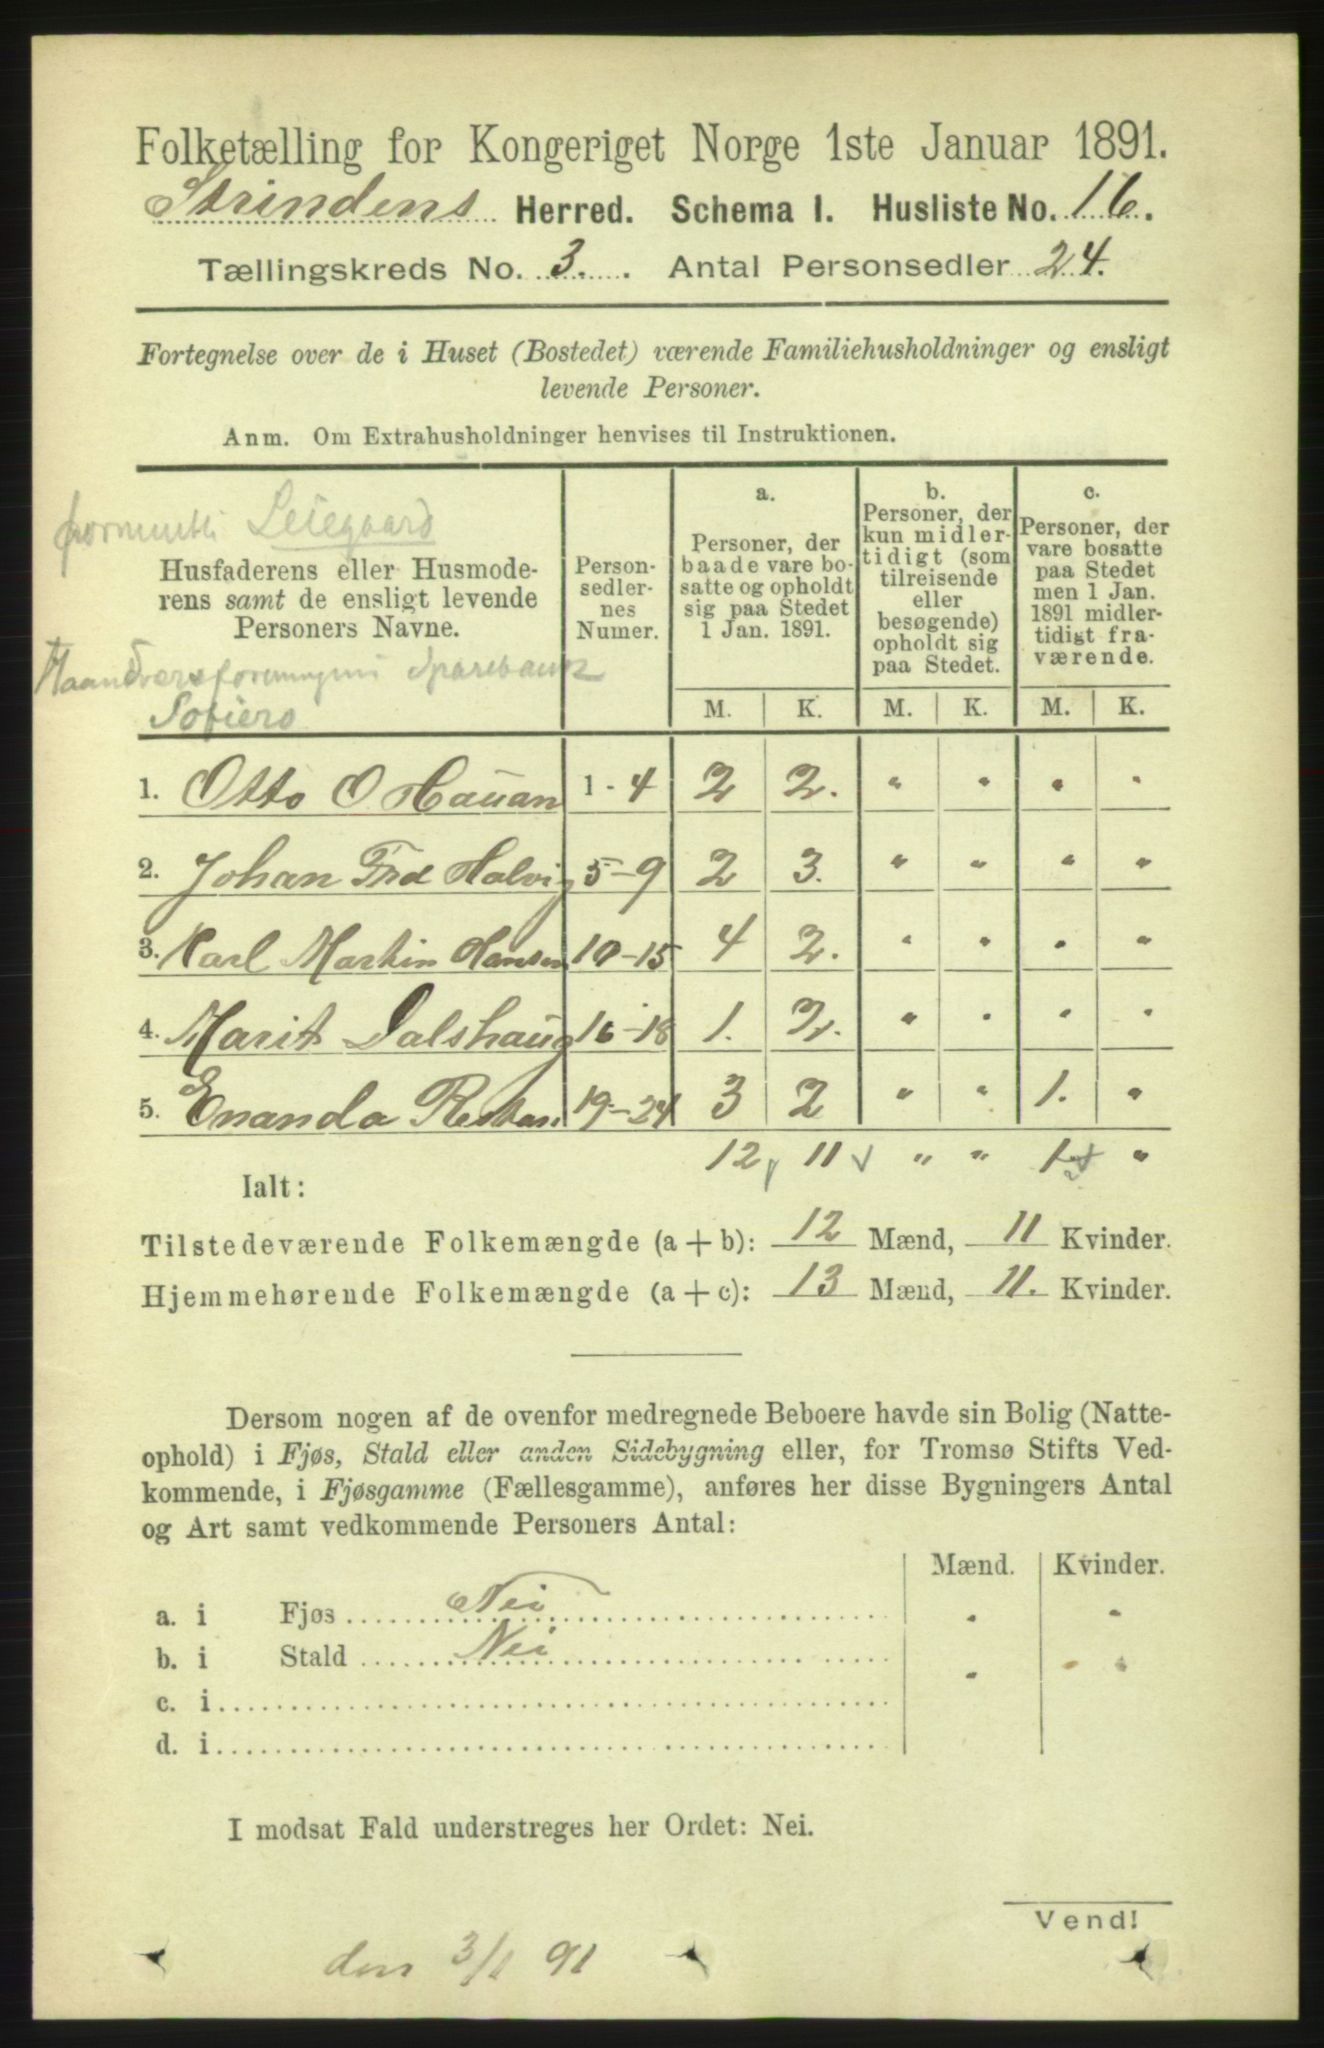 Folketælling for Kongeriget Norge 1ste Januar 1891.
Strindens Herred. Schema I. Husliste No. 16.
Tællingskreds No. 3. Antal Personsedler 24.
Fortegnelse over de i Huset (Bostedet) værende Familiehusholdninger og ensligt
levende Personer.
Anm. Om Extrahusholdninger henvises til Instruktionen.
Leiegaard
Husfaderens eller Husmode-
rens samt de ensligt levende
Personers Navne.
Sparebank
Sofiero
Person-
sedler-
nes
Numer.
a.
Personer, der
baade vare bo-
satte og opholdt
sig paa Stedet
1 Jan. 1891.
b.
Personer, der
kun midler-
tidigt (som
tilreisende
eller
besøgende)
opholdt sig
paa Stedet.
c.
Personer, der
vare bosatte
paa Stedet
men 1 Jan.
1891 midler-
tidigt fra-
værende.
M. K. M. K. M. K.
1. Otto O Hauan 1-4 2 2. " " " "
2. Johan Fred Halvig 5-9 2 3. " " " "
3. Karl Martin Hansen 10-15 4 2. " " " "
4. Marit Dalshaug 16-18 1. 2. " " " "
5. Enanda 19-24 3 2 " " 1. "
12 11 " " 1 "
Ialt:
Tilstedeværende Folkemængde (a + b): 12 Mænd, 11 Kvinder.
Hjemmehørende Folkemængde (a + c): 13 Mænd, 11. Kvinder.
Dersom nogen af de ovenfor medregnede Beboere havde sin Bolig (Natte-
ophold) i Fjøs, Stald eller anden Sidebygning eller, for Tromsø Stifts Ved-
kommende, i Fjøsgamme (Fællesgamme), anføres her disse Bygningers Antal
og Art samt vedkommende Personers Antal:
Mænd. Kvinder.
a. i Fjøs Nei " "
b. i Stald Nei " "
c. i
d. i
I modsat Fald understreges her Ordet: Nei.
Vend!
den 3/1 91